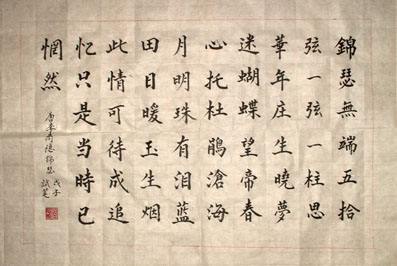 錦瑟無端五拾
弦一弦一柱思
華年庄生曉夢
迷蝴蝶望帝春
心托杜鵑滄海
月明珠有泪藍
田日暖玉生烟
此情可待成追
忆只是当時已
惘然
唐李商隐锦瑟
戊子
試筆